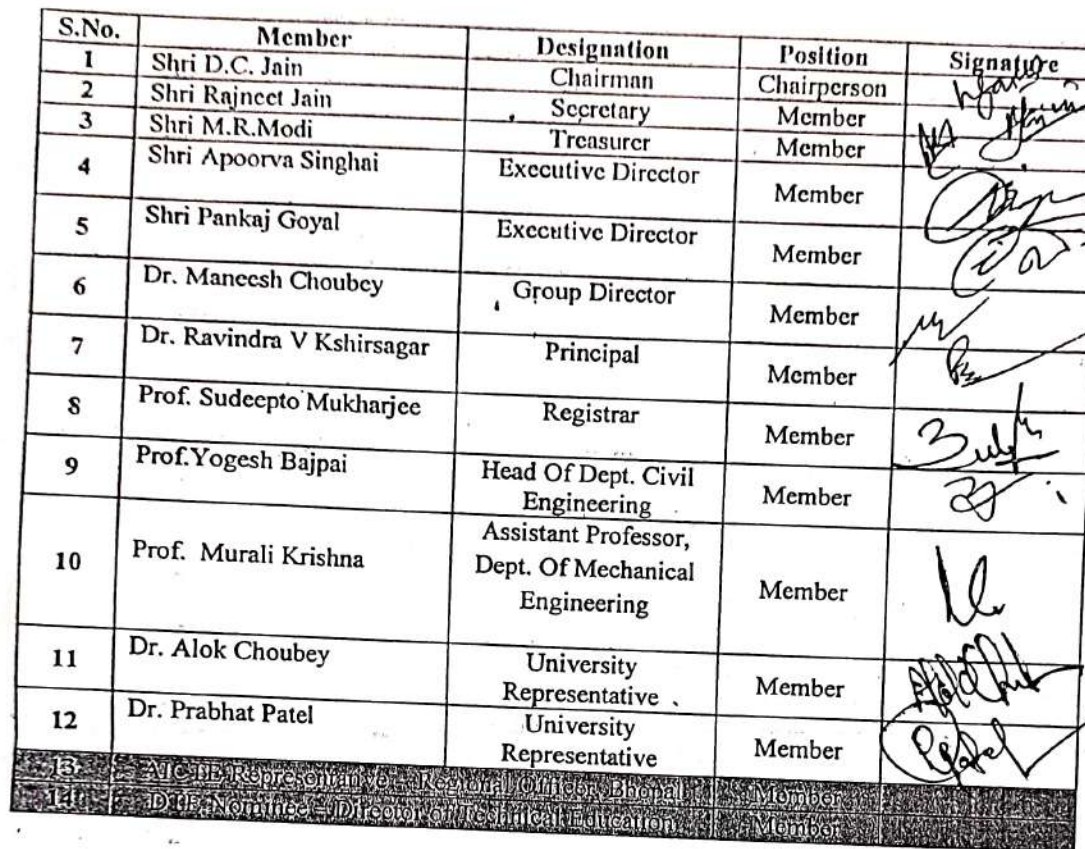 S.No. Member Designation Position Signature
1 Shri D.C. Jain Chairman Chairperson
2 Shri Rajneet Jain Secretary Member
3 Shri M.R.Modi Treasurer Member
4 Shri Apoorva Singhai Executive Director Member
5 Shri Pankaj Goyal Executive Director Member
6 Dr. Maneesh Choubey Group Director Member
7 Dr. Ravindra V Kshirsagar Principal Member
8 Prof. Sudeepto Mukharjee Registrar Member
9 Prof.Yogesh Bajpai Head Of Dept. Civil
Engineering Member
10 Prof. Murali Krishna Assistant Professor,
Dept. Of Mechanical
Engineering Member
11 Dr. Alok Choubey University
Representative Member
12 Dr. Prabhat Patel University
Representative Member
13 AICTE Representative Regional Officer, Bhopal Member
14 DTE Nominee Director of Technical Education Member